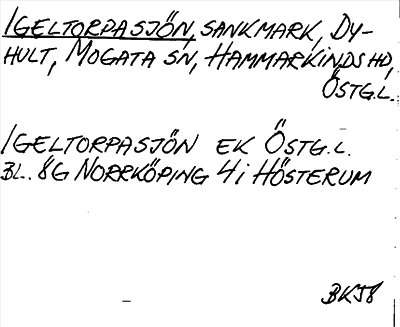 IGELTORPASJÖN, SANKMARK, DY-
HULT, MOGATA SN, HAMMARKINDS HD,
ÖSTG.L.
IGELTORPASJÖN EK ÖSTG.L.
BL. 8G NORRKÖPING 4i HÖSTERUM
BKJ8